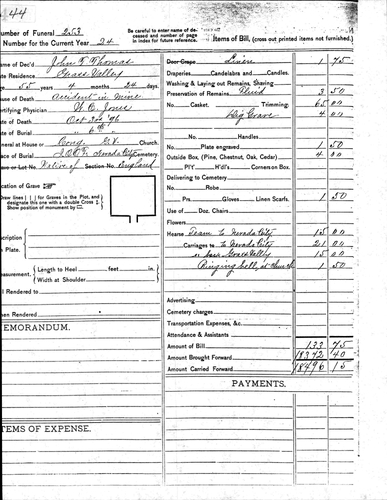 44
of Funeral 253
Number for the Current Year 24
Be careful to enter name of de-
ceased and number of page
in index for future reference.
Items of Bill, (cross out printed items not furnished.)
Name of Dec'd John T. Thomas
Residence Grass Valley
55 years 4 months 24 days
of Death Accident in Mine
Certifying Physician W. C. Jones
of Death Oct 3rd '96
of Burial " 6th "
Funeral at House or Cong. G.V. Church
of Burial I.O.O.F. Nevada City Cemetery
or Lot No. Native of Section No. England
Location of Grave
Draw lines for Graves in the Plot, and
designate this one with a double Cross
Show position of monument by
Description
Plan
Measurement, Length to Heel feet in.
Width at Shoulder
Bill Rendered to
When Rendered
MEMORANDUM.
ITEMS OF EXPENSE.
Door Crape Linen 1 75
Draperies Candelabra and Candles.
Washing & Laying out Remains, Shaving
Preservation of Remains Fluid 3 50
No. Casket. Trimming. 65 00
Dig Grave 4 00
No. Handles
No. Plate engraved 1 50
Outside Box (Pine, Chestnut, Oak, Cedar) 4 00
P'l'f. H'd'l's Corners on Box.
Delivering to Cemetery
No. Robe
Prs. Gloves Linen Scarfs. 1 50
Use of Doz. Chairs
Flowers
Hearse Team to Nevada City 15 00
Carriages to to Nevada City 21 00
" Grass Valley 15 00
Ringing bell at church 1 50
Advertising
Cemetery charges
Transportation Expenses, &c.
Attendance & Assistants
Amount of Bill 133 75
Amount Brought Forward 18342 40
Amount Carried Forward 18476 15
PAYMENTS.